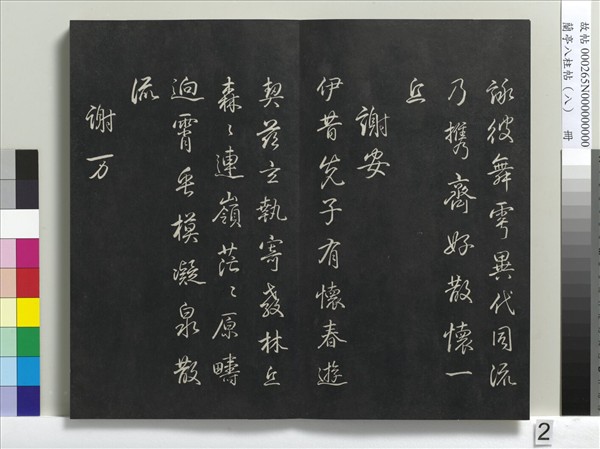 故帖 000265N000000000
蘭亭八柱帖（八） 冊
詠彼舞雩異代同流
乃携齊好散懷一
丘
謝安
伊昔先子有懷春遊
契茲言執寄敖林丘
森々連嶺茫々原疇
迥霄垂模凝泉散
流
謝万
2